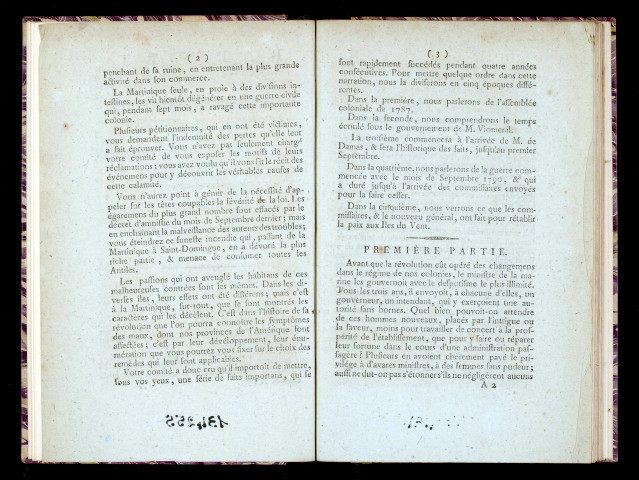 ( 2 )
penchant de sa ruine, en entretenant la plus grande
activité dans son commerce.
La Martinique seule, en proie à des divisions in-
testines, les vit bientôt dégénérer en une guerre civile
qui, pendant sept mois, a ravagé cette importante
colonie.
Plusieurs pétitionnaires, qui en ont été victimes,
vous demandent l'indemnité des pertes qu'elle leur
a fait éprouver. Vous n'avez pas seulement chargé
votre comité de vous exposer les motifs de leurs
réclamations; vous avez voulu qu'il vous fît le récit des
événemens pour y découvrir les véritables causes de
cette calamité.
Vous n'aurez point à gémir de la nécessité d'ap-
peler sur les têtes coupables la sévérité de la loi. Les
égaremens du plus grand nombre sont effacés par le
décret d'amnistie du mois de Septembre dernier; mais
en enchaînant la malveillance des auteurs des troubles;
vous éteindrez ce funeste incendie qui, passant de la
Martinique à Saint-Domingue, en a dévoré la plus
riche partie, & menace de consumer toutes les
Antilles.
Les passions qui ont aveuglé les habitans de ces
malheureuses contrées sont les mêmes. Dans les di-
verses îles, leurs effets ont été différens; mais c'est
à la Martinique, sur-tout, que se sont montrés les
caractères qui les décèlent. C'est dans l'histoire de sa
révolution que l'on pourra connoître les symptômes
des maux, dont nos provinces de l'Amérique sont
affectées; c'est par leur développement, leur énu-
mération que vous pourrez vous fixer sur le choix des
remèdes qui leur sont applicables.
Votre comité a donc cru qu'il importoit de mettre,
sous vos yeux, une série de faits importans, qui se
134255
( 3 )
sont rapidement succédés pendant quatre années
consécutives. Pour mettre quelque ordre dans cette
narration, nous la diviserons en cinq époques diffé-
rentes.
Dans la première, nous parlerons de l'assemblée
coloniale de 1787.
Dans la seconde, nous comprendrons le temps
écoulé sous le gouvernement de M. Viomenil.
La troisième commencera à l'arrivée de M. de
Damas, & sera l'historique des faits, jusqu'au premier
Septembre.
Dans la quatrième, nous parlerons de la guerre com-
mencée avec le mois de Septembre 1790, & qui
a duré jusqu'à l'arrivée des commissaires envoyés
pour la faire cesser.
Dans la cinquième, nous verrons ce que les com-
missaires, & le nouveau général, ont fait pour rétablir
la paix aux Iles du Vent.
PREMIÈRE PARTIE.
Avant que la révolution eût opéré des changemens
dans le régime de nos colonies, le ministre de la ma-
rine les gouvernoit avec le despotisme le plus illimité.
Tous les trois ans, il envoyoit, à chacune d'elles, un
gouverneur, un intendant, qui y exerçoient une au-
torité sans bornes. Quel bien pouvoit-on attendre
de ces hommes nouveaux, placés par l'intrigue ou
la faveur, moins pour travailler de concert à la pros-
périté de l'établissement, que pour y faire ou réparer
leur fortune dans le cours d'une administration pas-
sagère? Plusieurs en avoient chèrement payé le pri-
vilège à d'avares ministres, à des femmes sans pudeur;
aussi ne dut-on pas s'étonner s'ils ne négligèrent aucuns
A 2